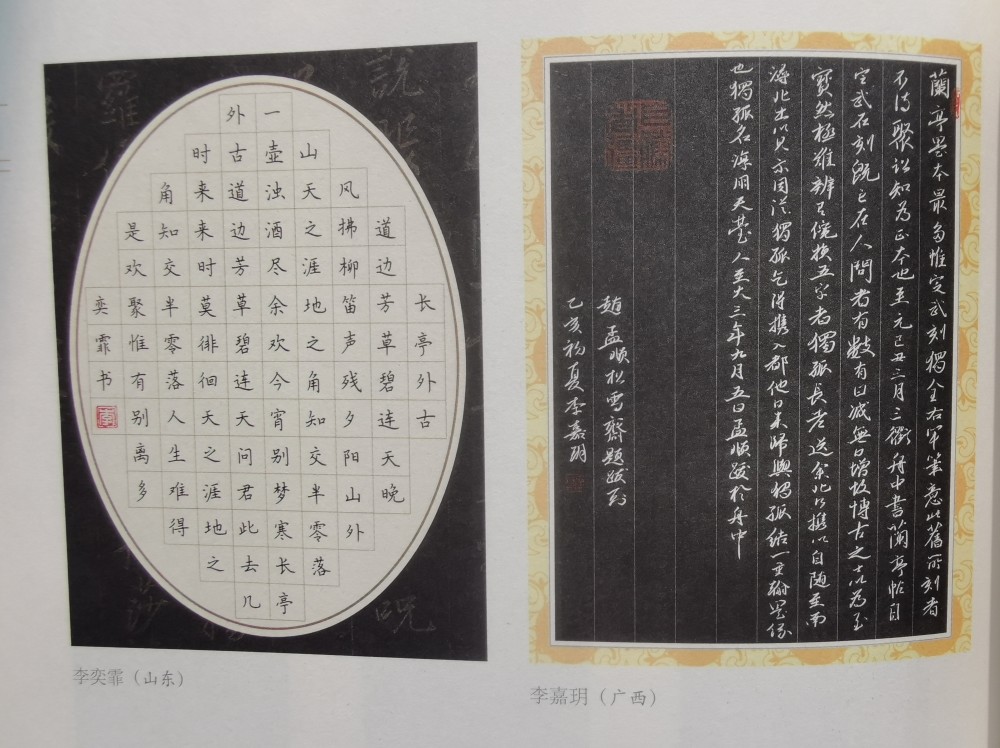 长亭外古
道边芳草碧连天晚
风拂柳笛声残夕阳山外
山天之涯地之角知交半零落
一壶浊酒尽余欢今宵别梦寒长亭
外古道边芳草碧连天问君此去几
时来来时莫徘徊天之涯地之
角知交半零落人生难得
是欢聚惟有别离多
奕霏书
李奕霏(山东)
蘭亭墨本最多惟定武刻獨全右军筆意此舊所刻者
不待聚讼知为正本也至元己丑三月三衢舟中書蘭亭帖自
定武石刻既亡在人間者有數有日减無日增故博古之士以为至
寶然極難辨损五字者獨孤長老送余北行攜以自随至南
潯北出以見示因從獨孤乞得携入都他日来歸與獨孤结一重翰墨缘
也獨孤名淳朋天臺人至大三年九月五日孟頫跋於舟中
趙孟頫松雪齋題跋
乙亥初夏李嘉玥
李嘉玥(广西)